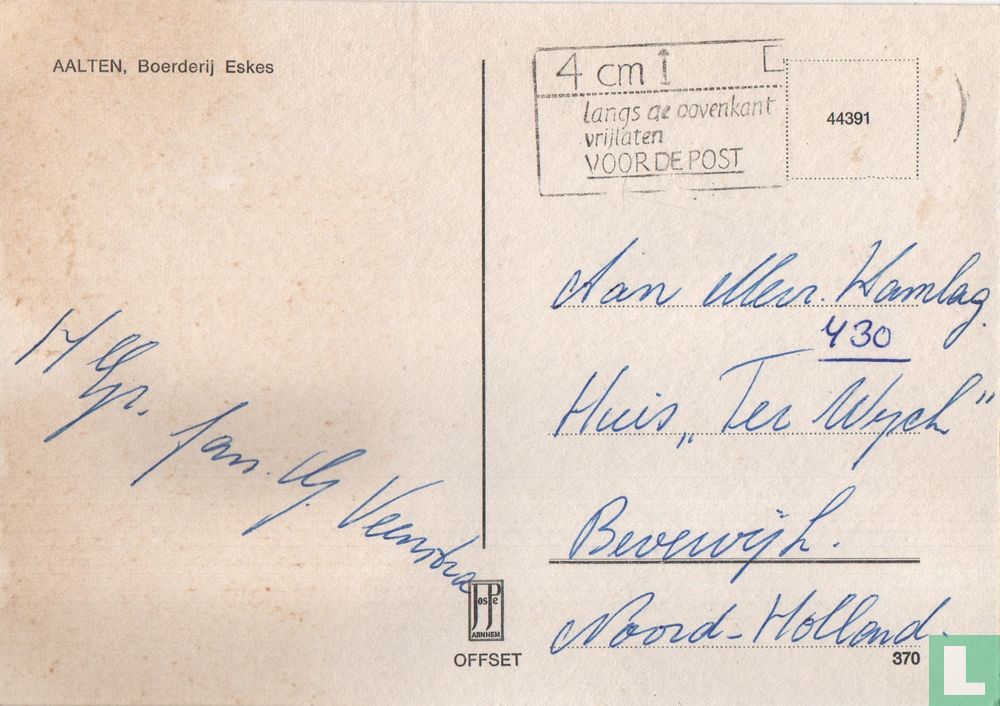 AALTEN, Boerderij Eskes
4 cm
langs de bovenkant
vrijlaten
VOOR DE POST
44391
Aan Mevr. Hamlag
430
Huis „Ter Wych"
Beverwijk.
Noord-Holland.
H Gr.
fam. G. Veenstra
JosPe
ARNHEM
OFFSET
370
L